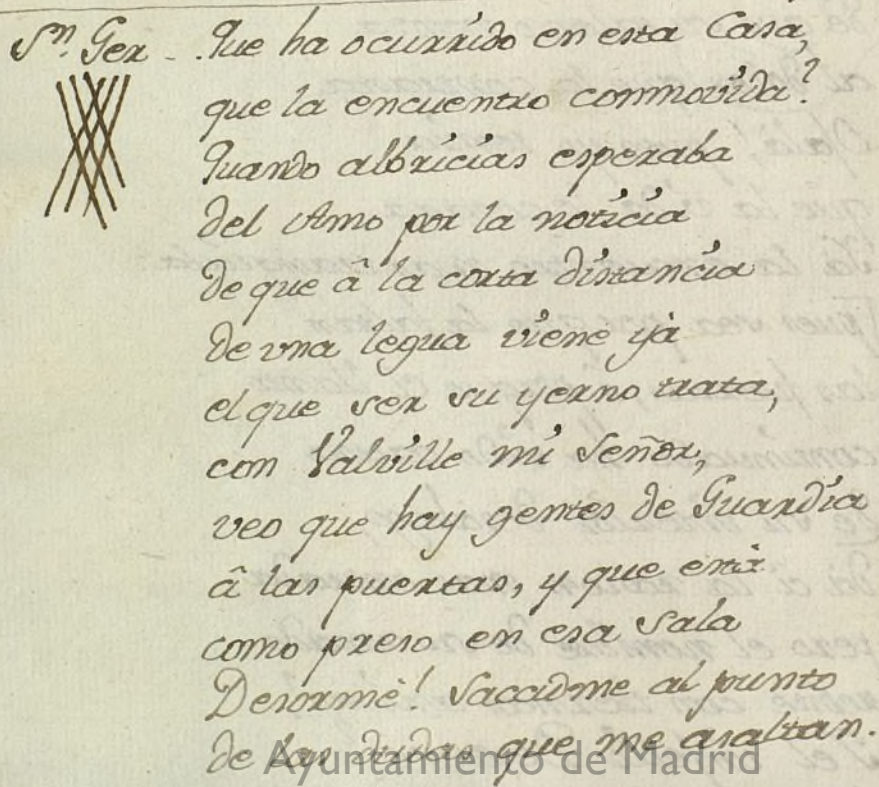 Sn. Ger - . Que ha ocurrido en esta Casa,
que la encuentro conmovida?
Quando albricias esperaba
del Amo por la noticia
de que â la corta distancia
de vna legua viene yà
el que ser su yerno trata,
con Valville mi Señor,
veo que hay gentes de Guardia
â las puertas, y que està
como preso en esa Sala
Desormè! Saccidme al punto
de las dudas que me asaltan.
Ayuntamiento de Madrid